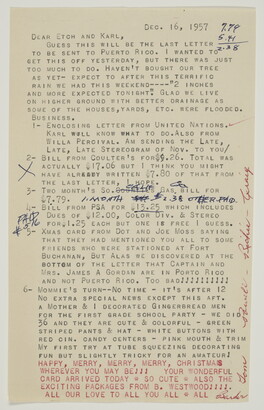 Dec. 16, 1957
7.79
5.41
2.38
Dear Etch and Karl,
Guess this will be the last letter
to be sent to Puerto Rico. I wanted to
get this off yesterday, but there was just
too much to do. Haven't bought our tree
as yet- expect to after this terrific
rain we had this weekend----*2 inches
and more expected tonight. Glad we live
on higher ground with better drainage as
some of the houses, yards, etc. were flooded.
Business.
1- Enclosing letter from United Nations.
Karl will know what to do. Also from
Bills Percival. Am sending the Late,
Late, Late Stereogram of Nov. to you/
2- Bill from Coulter's for $9.26. Total was
actually $17.06 but I think you might
have already written $7.80 of that from
the last letter, I hope.
3- Two month's So. Gas, bill for
$7.79. 1 month
4- Bill from PSA for $13.25 which includes
Dues of $12.00, Color Div. & Stereo
for $1.25 each but one is free I guess.
PAID
5- Xmas card from Dot and Joe Moss saying
that they had mentioned you all to some
friends who were stationed at Fort
Buchanan, But alas we discovered at the
bottom of the letter that Captain and
Mrs. James A Gordon are in Porto Rico
and not Puerto Rico. Too bad!!!!!!!!!!
6- Mommie's turn--No time - it's after 12
No extra special news except this aft.
a Mother & I decorated Gingerbread men
for the first grade school party - we did
36 and they are cute & colorful - green
striped pants & hat - white buttons with
red cin. candy centers - pink mouth & trim
My first try at tube squeezing decorating
fun but slightly tricky for an amateur!
Happy, Merry, Merry, Merry, Christmas
wherever you may be!!! Your wonderful
card arrived today * so cute * also the
exciting packages from B. Westwood!!!!.
All our love to all you all * all